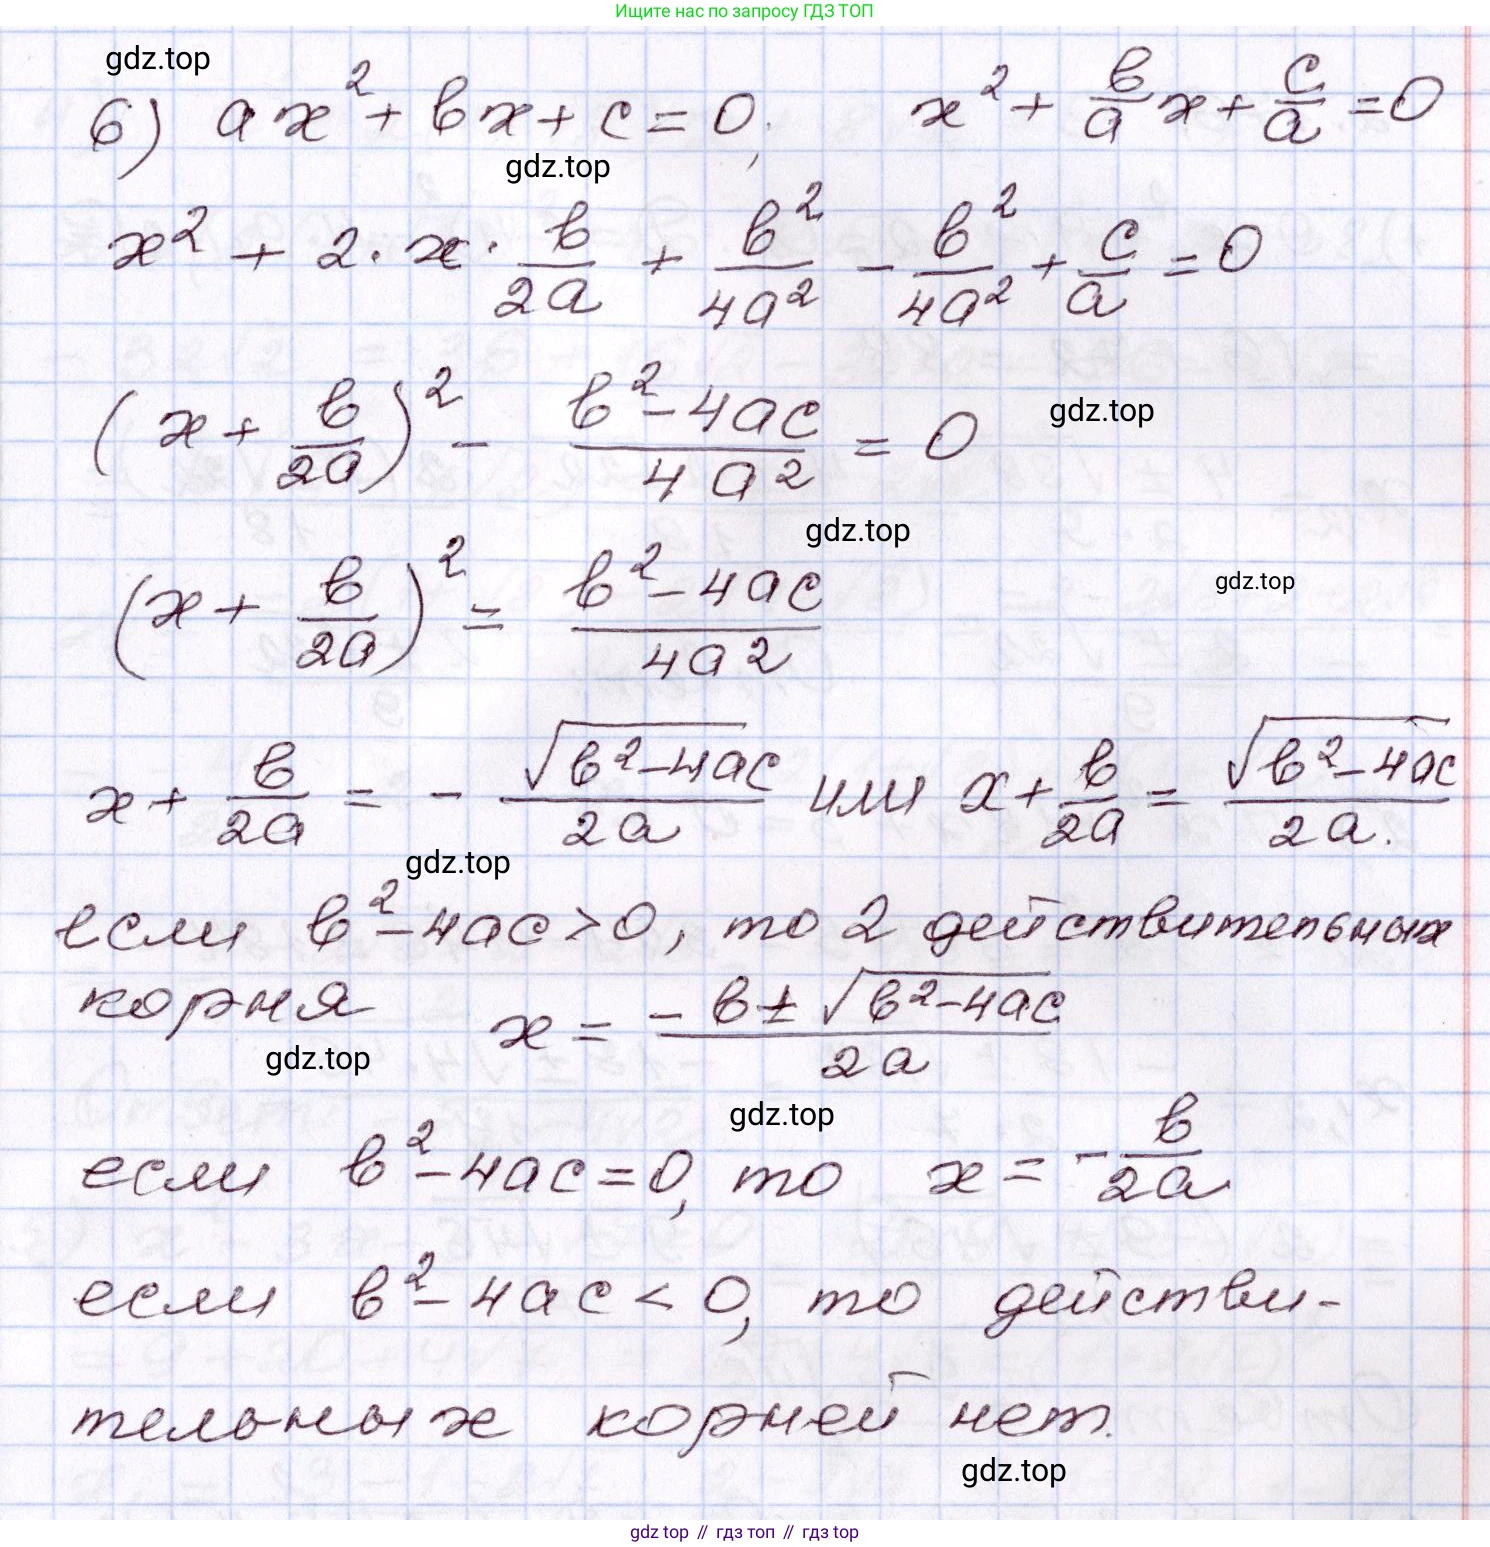 Ищите нас по запросу ГДЗ ТОП
gdz.top
6) ax² + bx + c = 0; x² + b/a x + c/a = 0
gdz.top
x² + 2·x·b/2a + b²/4a² − b²/4a² + c/a = 0
(x + b/2a)² − (b²−4ac)/4a² = 0
gdz.top
gdz.top
(x + b/2a)² = (b²−4ac)/4a²
gdz.top
x + b/2a = − √(b²−4ac)/2a или x + b/2a = √(b²−4ac)/2a.
gdz.top
если b²−4ac>0, то 2 действительных
корня x = (−b ± √(b²−4ac))/2a
gdz.top
gdz.top
если b²−4ac=0, то x = −b/2a
если b²−4ac < 0, то действи-
тельных корней нет.
gdz.top
gdz top // гдз топ // gdz top